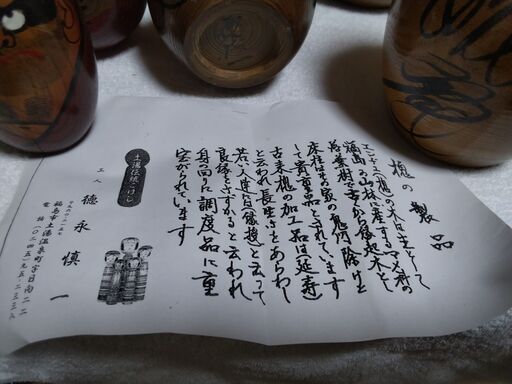 槐の製品
エンヂュ(槐)の木は主として
福島の山林に産するマメ科の
落葉樹で昔から縁起木と
床柱はその家の鬼門除けと
して貴重品とされています
古来槐の加工品は(延寿)
と云われ長生きをあらわし
若い人達は良縁
と云って
良縁をさずかると云われ
身の回り調度品に重
宝がられています
土湯伝統こけし
工人 徳永慎一
福島市土湯温泉町字
電話(〇二四五)九五-二